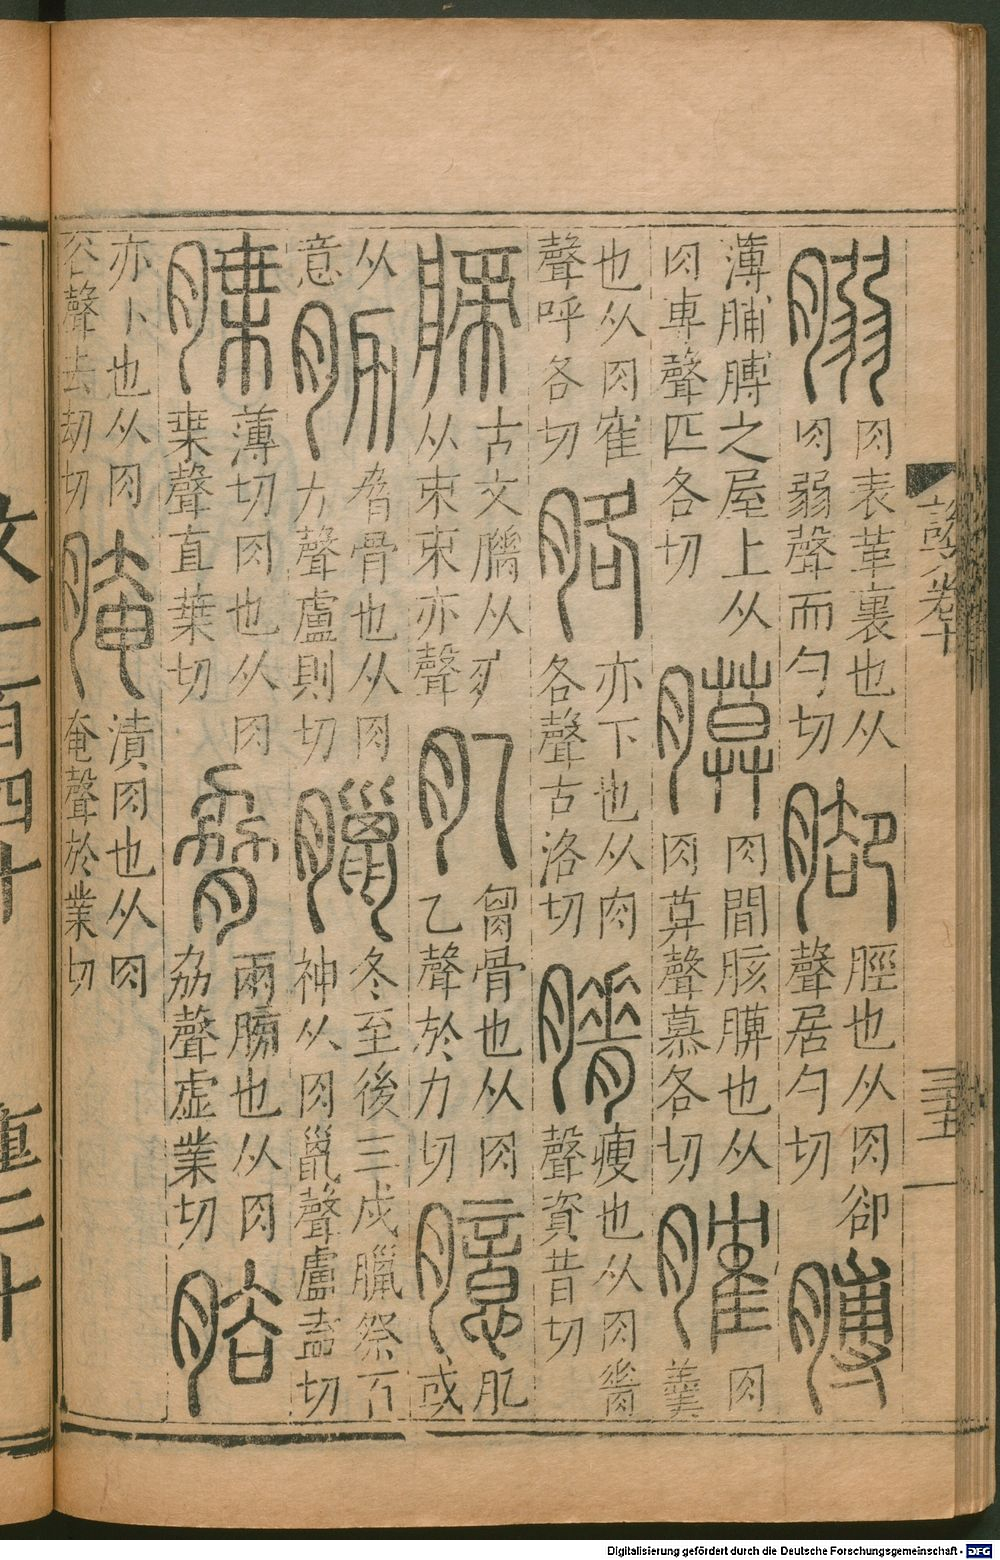 䐞肉表革裏也从肉弱聲而勺切腳脛也从肉卻聲居勺切膊
薄脯膊之屋上从肉尃聲匹各切膜肉間胲膜也从肉莫聲慕各切臛肉羹
也从肉隺聲呼各切胳亦下也从肉各聲古洛切膌瘦也从肉脊聲資昔切
𦟝古文膌从疒从朿朿亦聲肊匈骨也从肉乙聲於力切臆肊或
从意肋脅骨也从肉力聲盧則切臘冬至後三戌臘祭百神从肉巤聲盧盍切
牒薄切肉也从肉枼聲直葉切脅兩膀也从肉劦聲虛業切胠
亦卜也从肉谷聲去劫切腌漬肉也从肉奄聲於業切
文一百四十 重二十
Digitalisierung gefördert durch die Deutsche Forschungsgemeinschaft - DFG